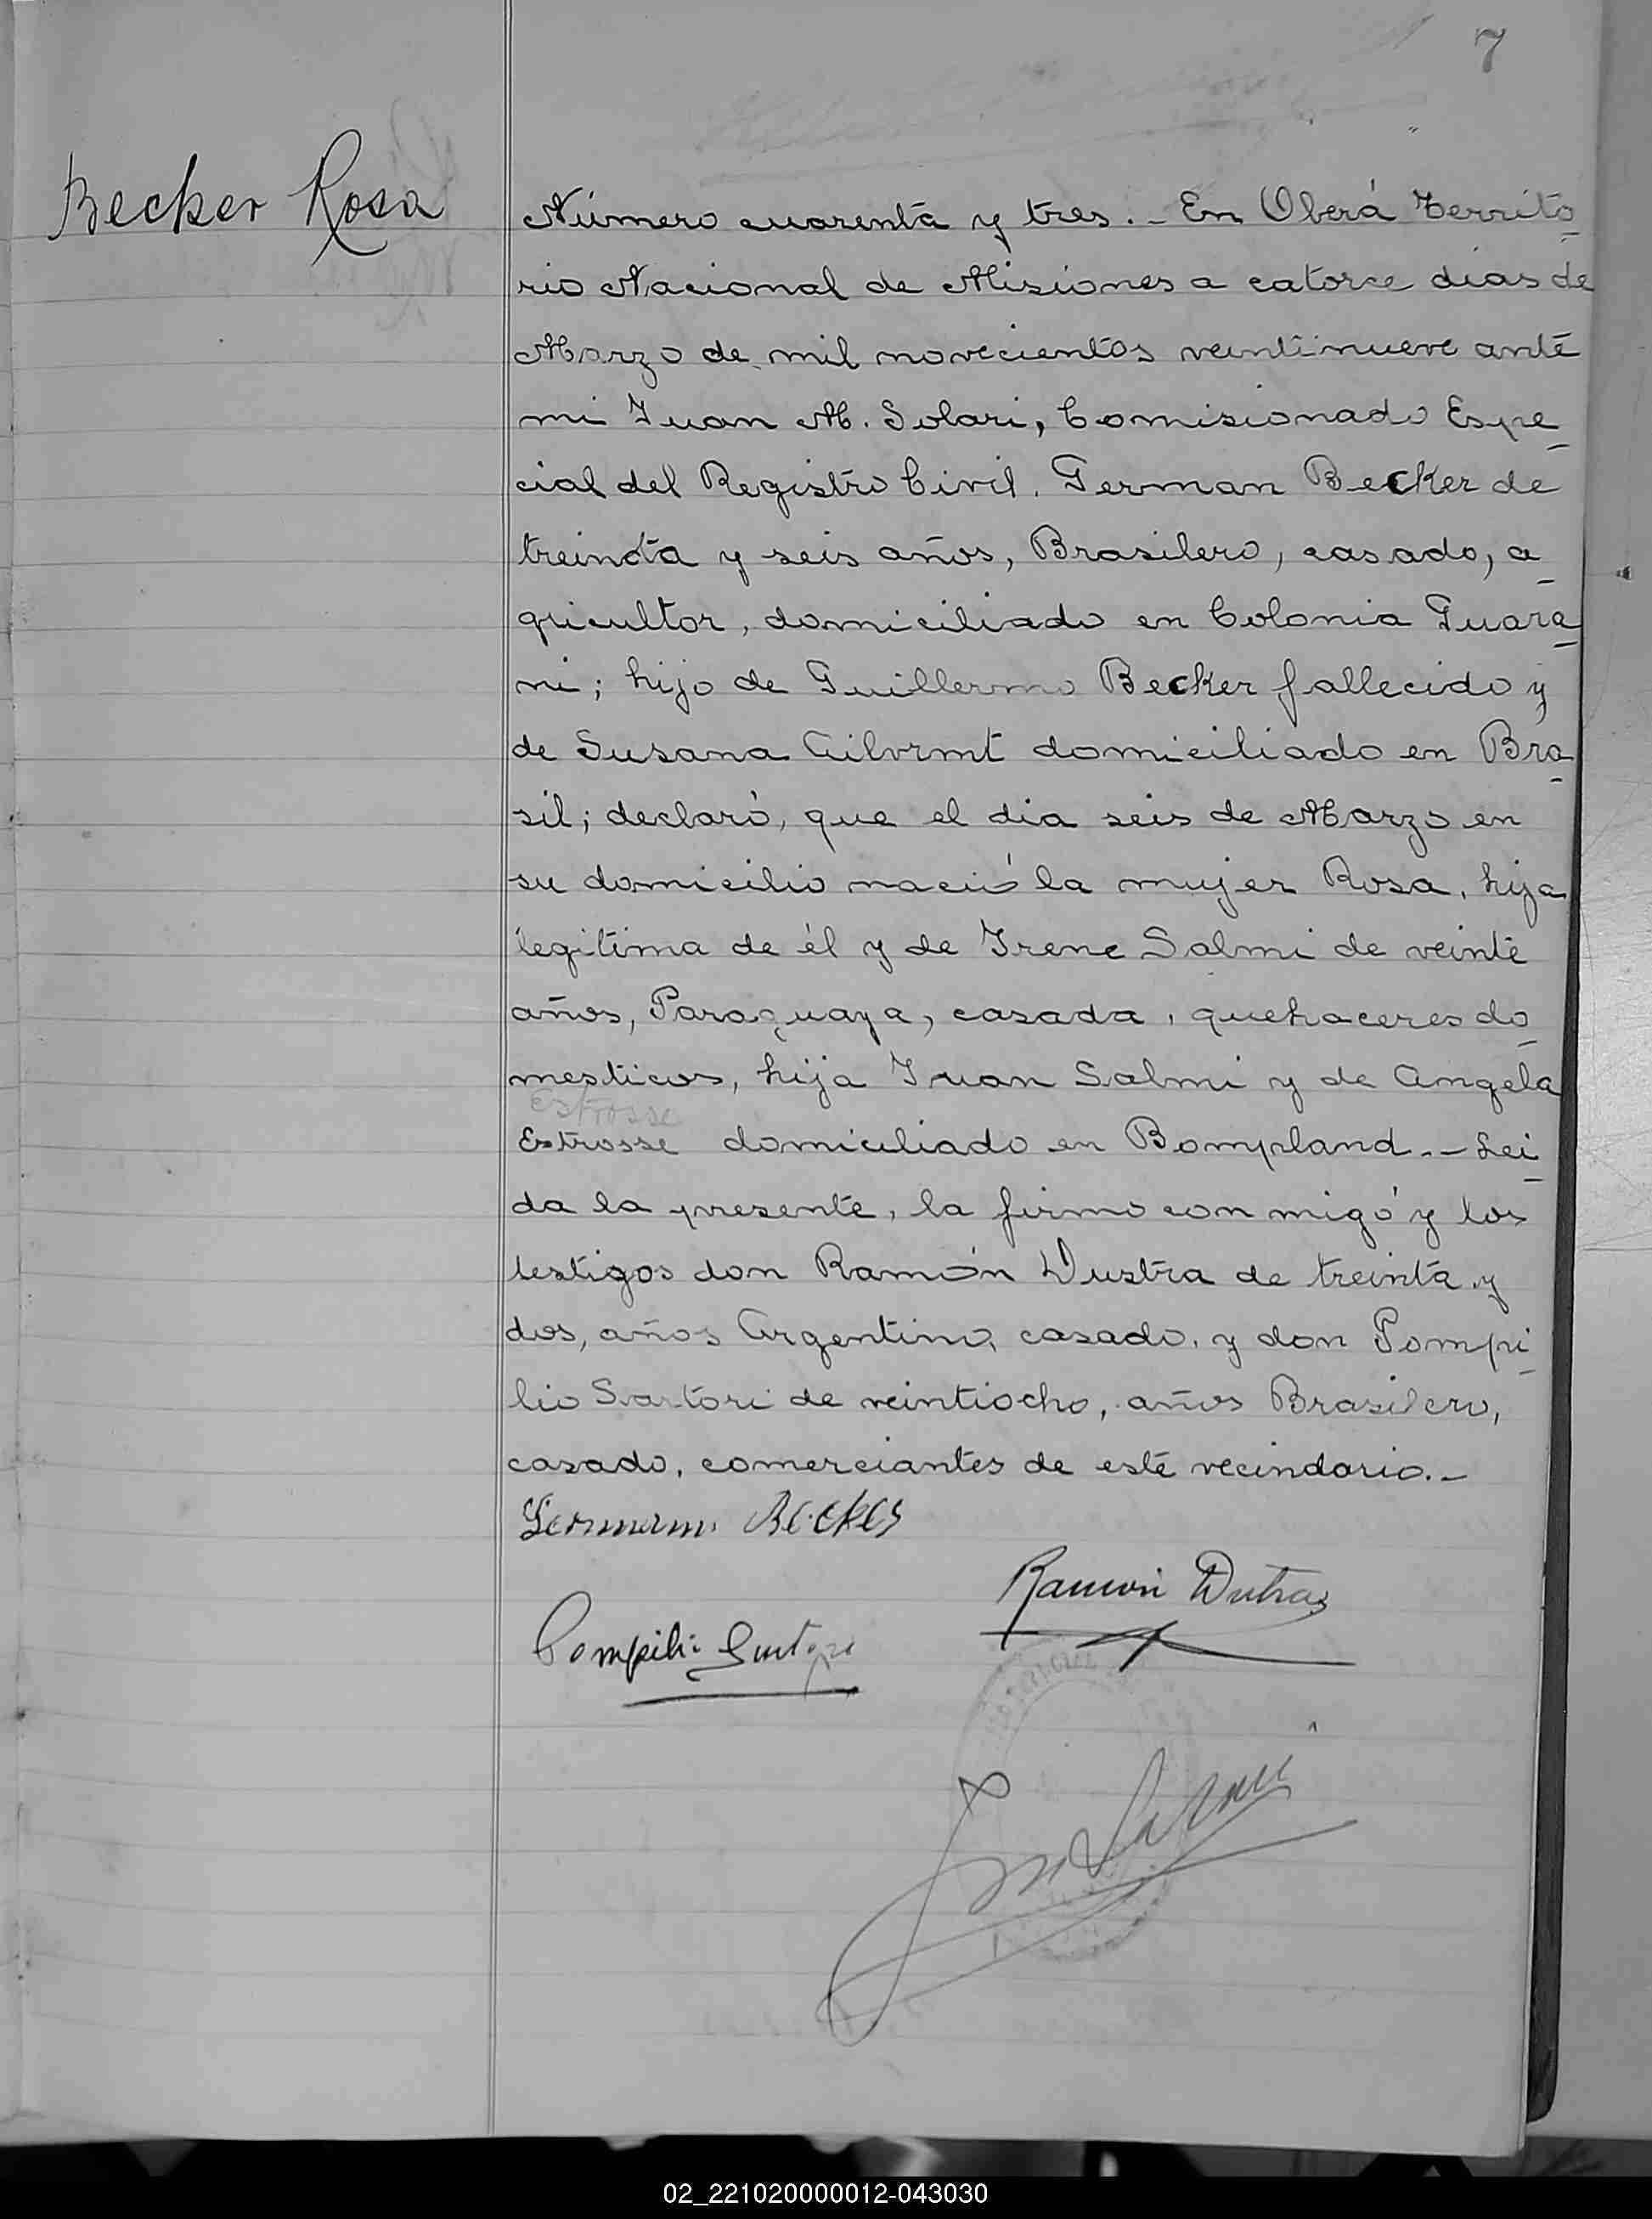 7
Becker Rosa
Número cuarenta y tres.- En Oberá Territo
rio Nacional de Misiones a catorce dias de
Marzo de mil novecientos veintinueve ante
mi Juan M. Solari, Comisionado Espe
cial del Registro Civil. German Becker de
treinta y seis años, Brasilero, casado, a
gricultor, domiciliado en Colonia Guara
ni; hijo de Guillermo Becker fallecido y
de Susana domiciliado en Bra
sil; declaró, que el dia seis de Marzo en
su domicilio nació la mujer Rosa, hija
legitima de él y de Irene Salmi de veinte
años, Paraguaya, casada, quehaceres do
mesticos, hija Juan Salmi y de Angela
Estrosse
Estrosse domiciliado en Bompland.- Lei
da la presente, la firmo con migo y los
testigos don Ramón Dustra de treinta y
dos, años Argentino, casado, y don Pompi
lio Sartori de veintiocho, años Brasilero,
casado, comerciantes de este vecindario.-
Germann Becker
Ramón Dutra
Pompilio Sartori
02_221020000012-043030